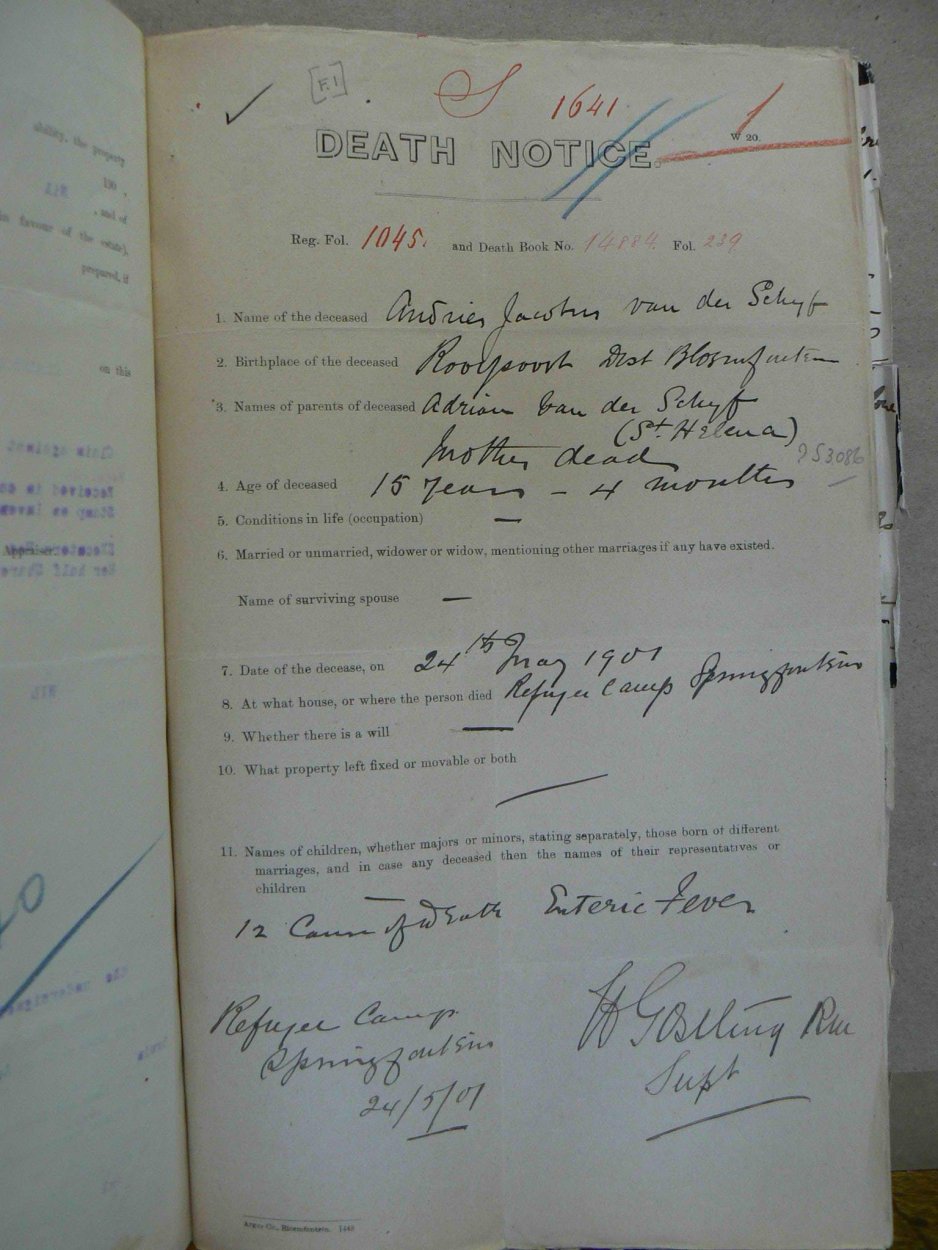 ability, the property
190 .
Nil , and of
in favour of the estate),
prepared, if
on this
Claim against
Received in
Her half Share
F.1
S 1641
1
W 20.
DEATH NOTICE.
Reg. Fol. 1045. and Death Book No. 14884 Fol. 239
1. Name of the deceased Andries Jacobus van der Schyf
2. Birthplace of the deceased Rooipoort Dist Bloemfontein
3. Names of parents of deceased Adrian van der Schyf
(St Helena)
Mother dead
4. Age of deceased 15 years – 4 months
5. Conditions in life (occupation) —
6. Married or unmarried, widower or widow, mentioning other marriages if any have existed.
Name of surviving spouse —
7. Date of the decease, on 24th May 1901
8. At what house, or where the person died Refugee Camp Springfontein
9. Whether there is a will —
10. What property left fixed or movable or both
11. Names of children, whether majors or minors, stating separately, those born of different
marriages, and in case any deceased then the names of their representatives or
children —
12 Cause of Death Enteric Fever
Refugee Camp
Springfontein
24/5/01
H Gostling
Supt
Argus Co., Bloemfontein.